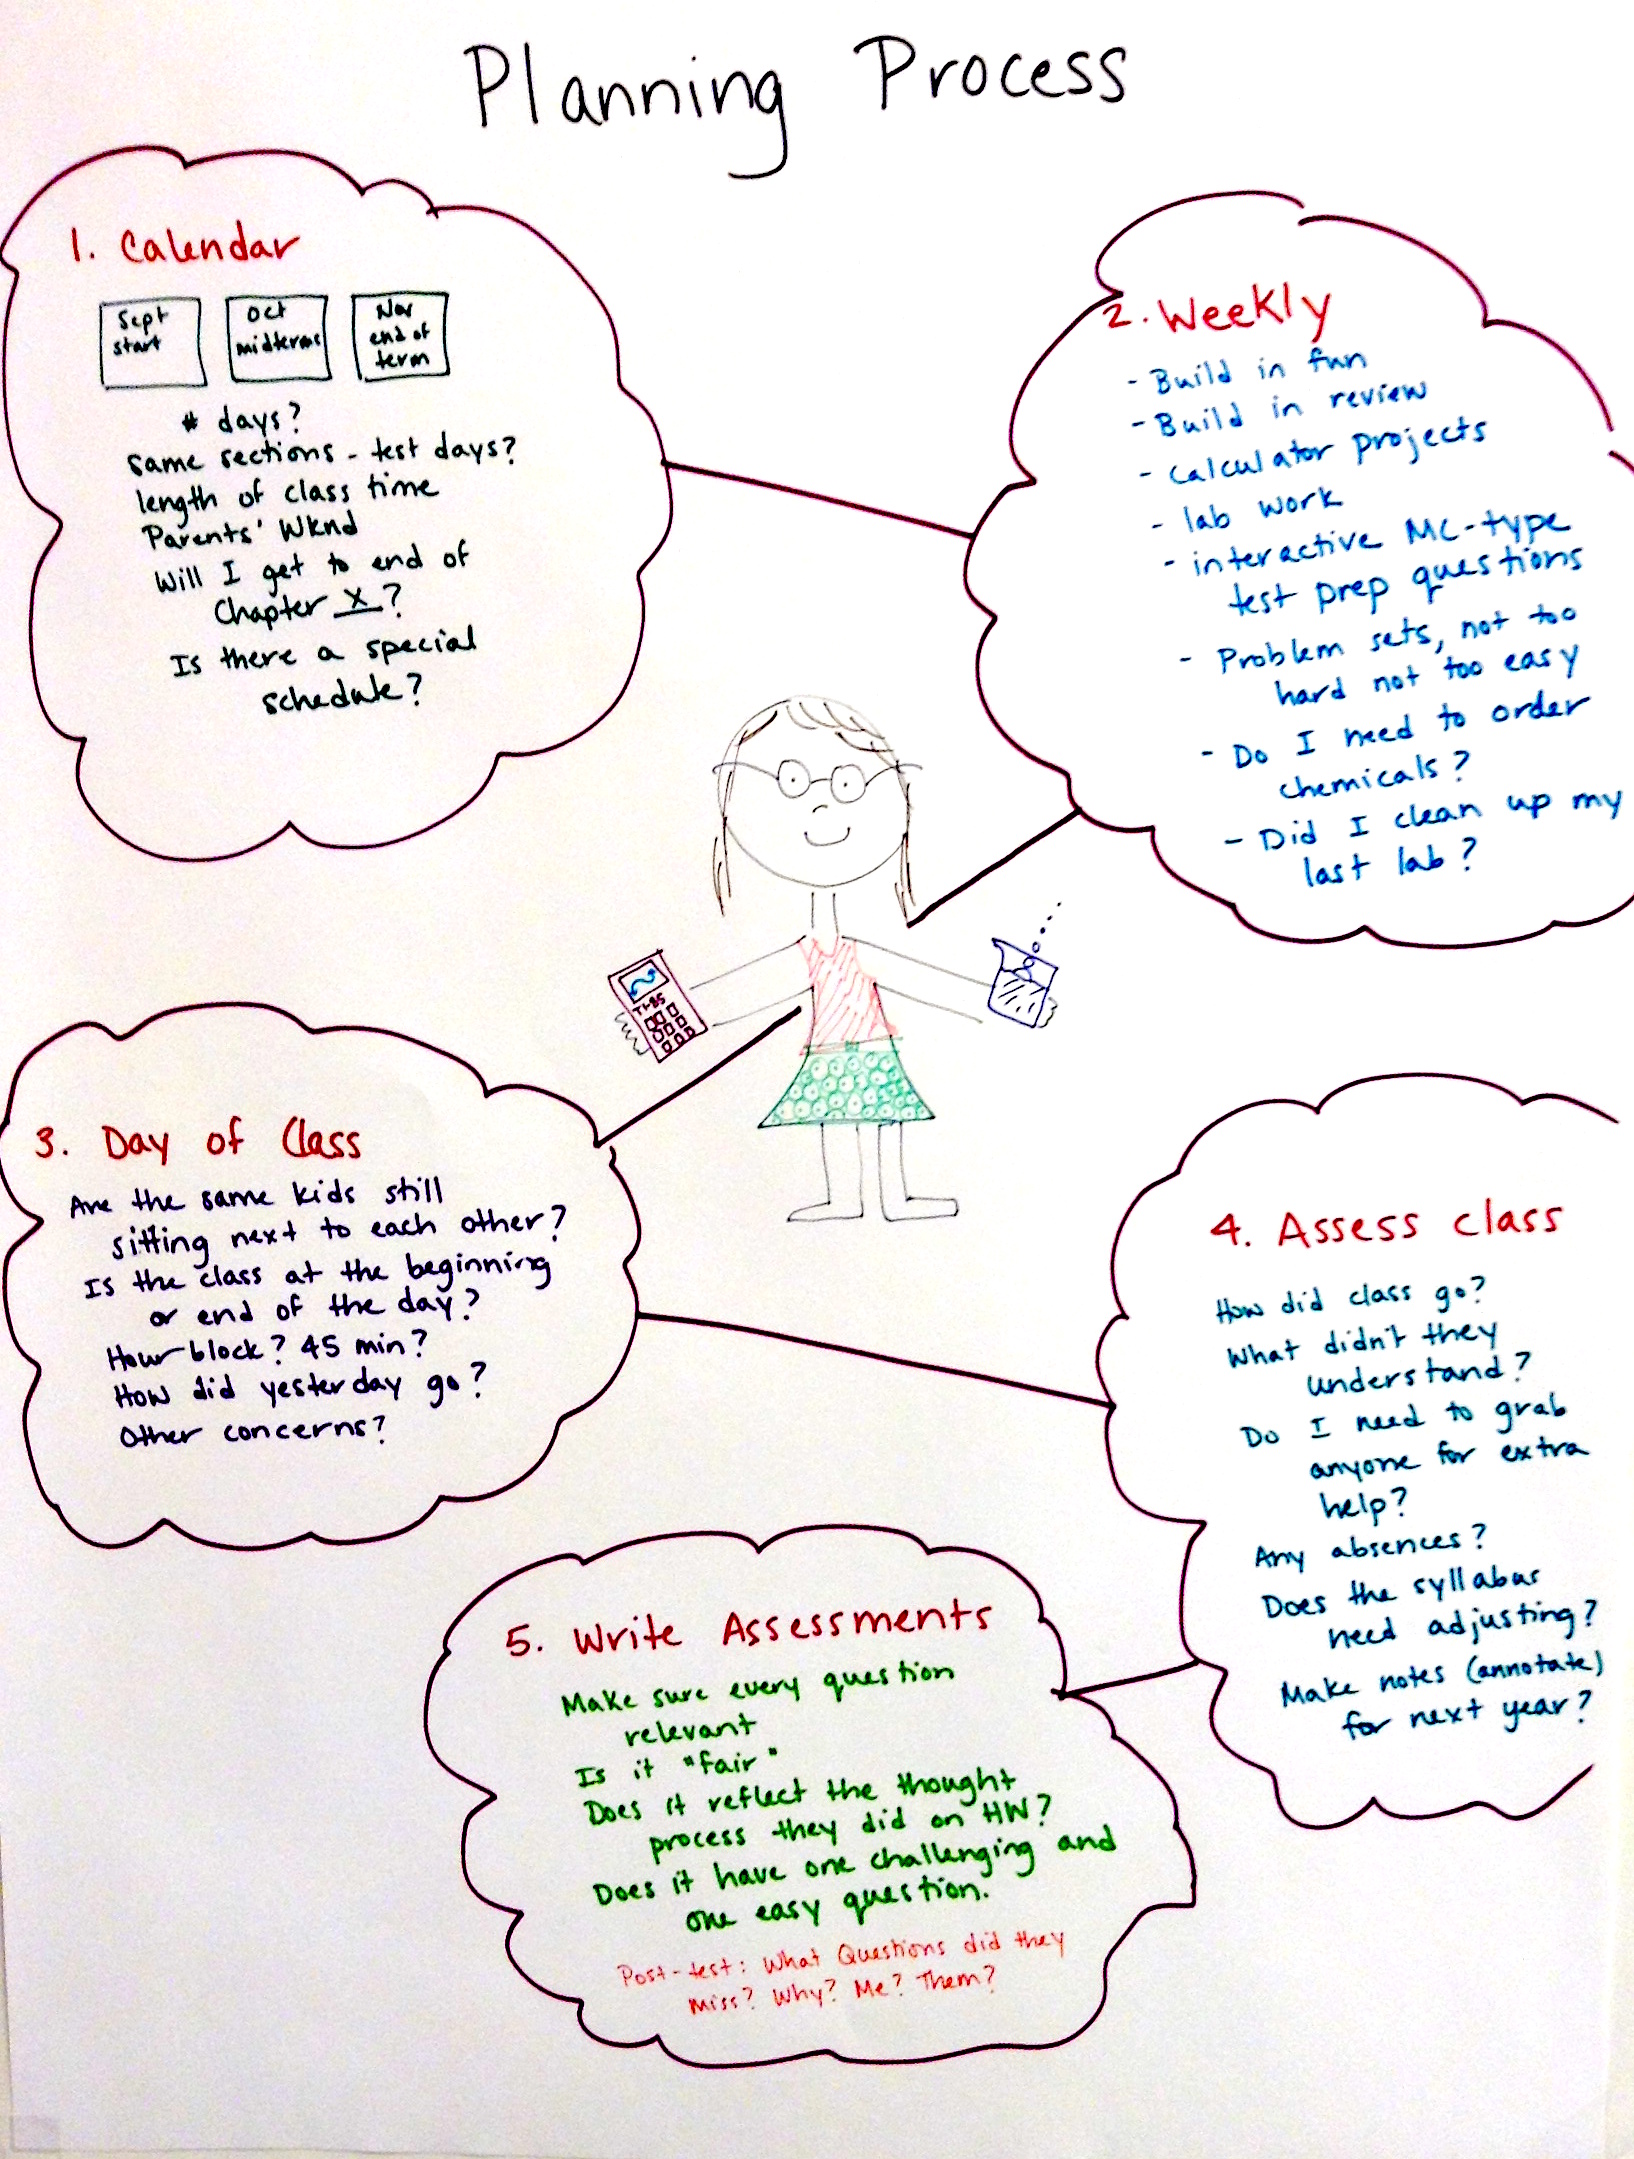 Planning Process
1. Calendar
Sept
start
Oct
midterms
Nov
end of
term
# days?
Same sections - test days?
length of class time
Parents' Wknd
Will I get to end of
Chapter X?
Is there a special
schedule?
2. Weekly
- Build in fun
- Build in review
- calculator projects
- lab work
- interactive MC-type
test prep questions
- Problem sets, not too
hard not too easy
- Do I need to order
chemicals?
- Did I clean up my
last lab?
TI-85
3. Day of Class
Are the same kids still
sitting next to each other?
Is the class at the beginning
or end of the day?
Hour block? 45 min?
How did yesterday go?
Other concerns?
4. Assess class
How did class go?
What didn't they
understand?
Do I need to grab
anyone for extra
help?
Any absences?
Does the syllabus
need adjusting?
Make notes (annotate)
for next year?
5. Write Assessments
Make sure every question
relevant
Is it "fair"
Does it reflect the thought
process they did on HW?
Does it have one challenging and
one easy question.
Post-test: What Questions did they
miss? Why? Me? Them?